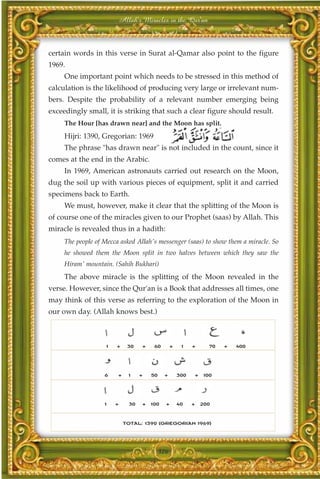 Allah's Miracles in the Qur'an
certain words in this verse in Surat al-Qamar also point to the figure
1969.
One important point which needs to be stressed in this method of
calculation is the likelihood of producing very large or irrelevant num-
bers. Despite the probability of a relevant number emerging being
exceedingly small, it is striking that such a clear figure should result.
The Hour [has drawn near] and the Moon has split.
Hijri: 1390, Gregorian: 1969 السَّاعَةُ وَانْشَقَّ الْقَمَرُ
The phrase "has drawn near" is not included in the count, since it
comes at the end in the Arabic.
In 1969, American astronauts carried out research on the Moon,
dug the soil up with various pieces of equipment, split it and carried
specimens back to Earth.
We must, however, make it clear that the splitting of the Moon is
of course one of the miracles given to our Prophet (saas) by Allah. This
miracle is revealed thus in a hadith:
The people of Mecca asked Allah's messenger (saas) to show them a miracle. So
he showed them the Moon split in two halves between which they saw the
Hiram' mountain. (Sahih Bukhari)
The above miracle is the splitting of the Moon revealed in the
verse. However, since the Qur'an is a Book that addresses all times, one
may think of this verse as referring to the exploration of the Moon in
our own day. (Allah knows best.)
ا ل س ا ع ه
1 + 30 + 60 + 1 + 70 + 400
و ا ن ش ق
6 + 1 + 50 + 300 + 100
ا ل ق م ر
1 + 30 + 100 + 40 + 200
TOTAL: 1390 (GREGORIAN 1969)